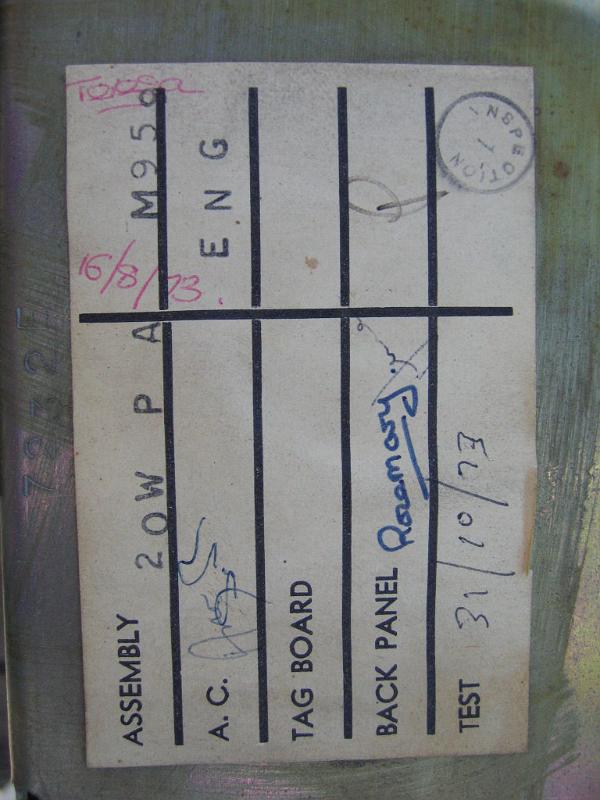 ASSEMBLY 20W PA M959
16/8/73.
A.C. ENG
TAG BOARD
BACK PANEL Rosemary
TEST 31/10/73
INSPECTION 1
7232E